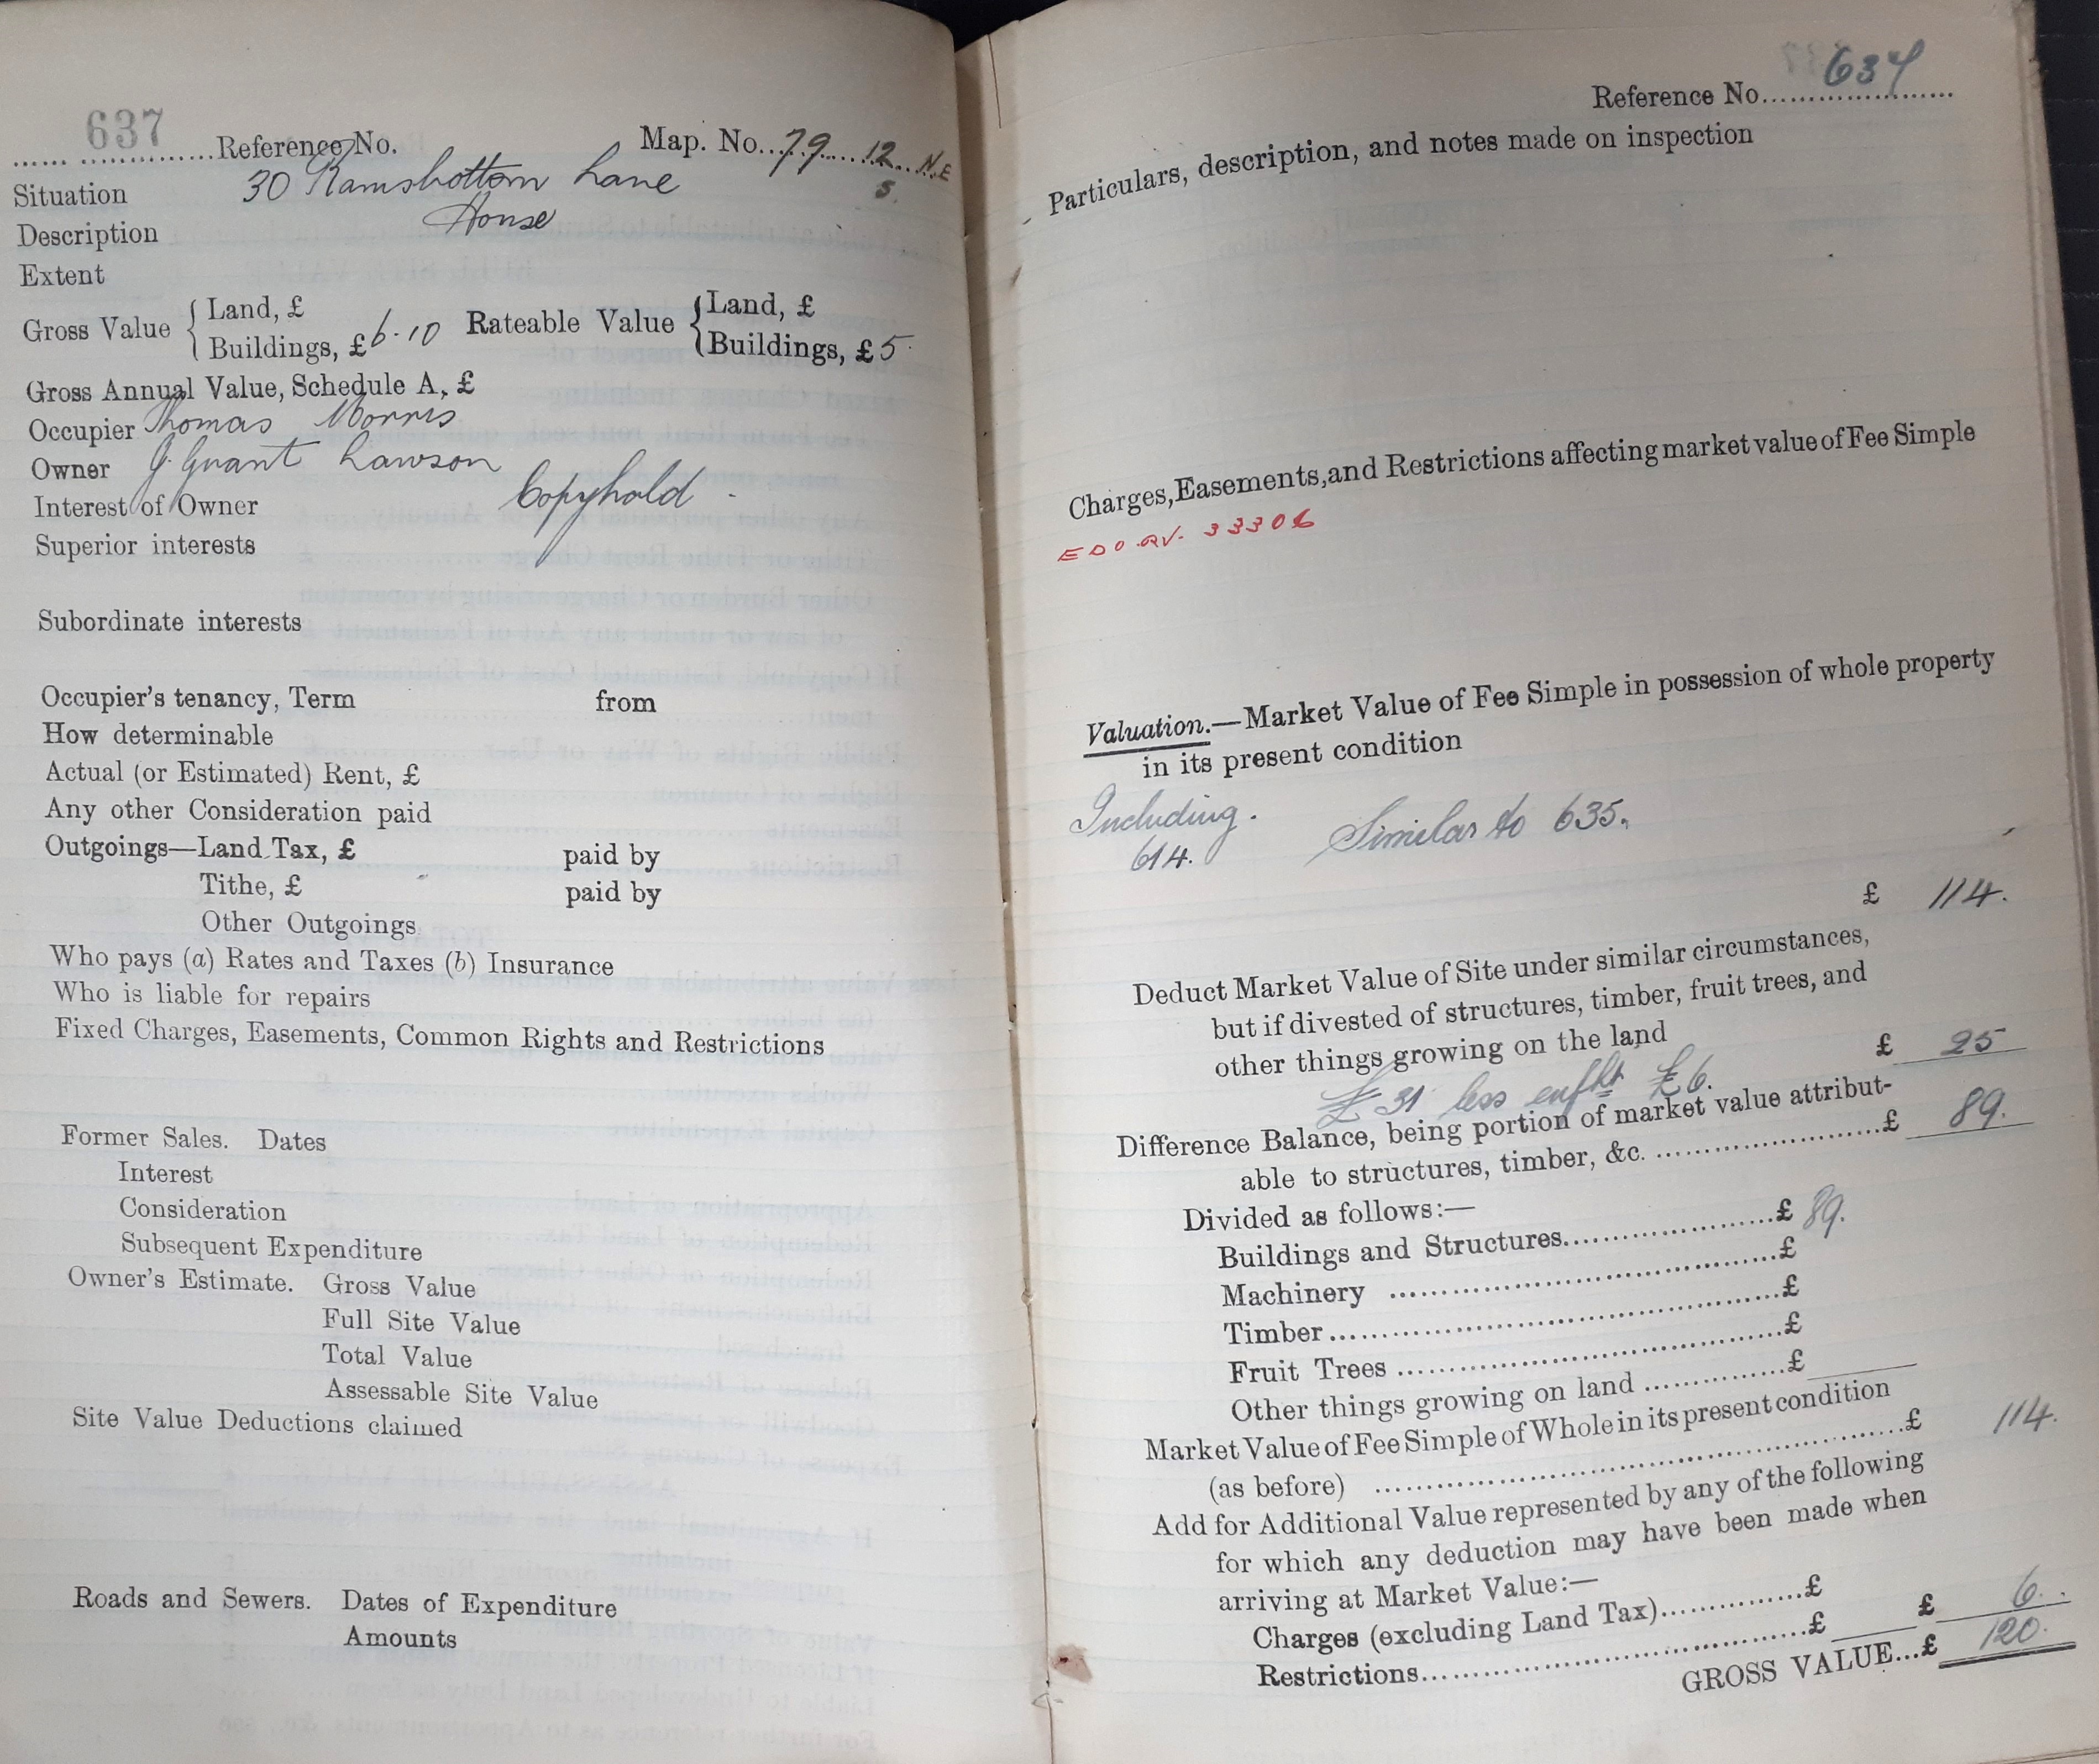 637
Reference No. Map. No. 79 12 N.E
5.
Situation 30 Ramsbottom Lane
Description House
Extent
Gross Value { Land, £ Rateable Value { Land, £
Buildings, £ 6.10 Buildings, £ 5
Gross Annual Value, Schedule A, £
Occupier Thomas Morris
Owner J. Grant Lawson
Interest of Owner Copyhold
Superior interests
Subordinate interests
Occupier's tenancy, Term from
How determinable
Actual (or Estimated) Rent, £
Any other Consideration paid
Outgoings—Land Tax, £ paid by
Tithe, £ paid by
Other Outgoings
Who pays (a) Rates and Taxes (b) Insurance
Who is liable for repairs
Fixed Charges, Easements, Common Rights and Restrictions
Former Sales. Dates
Interest
Consideration
Subsequent Expenditure
Owner's Estimate. Gross Value
Full Site Value
Total Value
Assessable Site Value
Site Value Deductions claimed
Roads and Sewers. Dates of Expenditure
Amounts
Reference No. 637
Particulars, description, and notes made on inspection
Charges, Easements, and Restrictions affecting market value of Fee Simple
33306
Valuation.—Market Value of Fee Simple in possession of whole property
in its present condition
Including. Similar to 635.
614.
£ 114.
Deduct Market Value of Site under similar circumstances,
but if divested of structures, timber, fruit trees, and
other things growing on the land £ 25
£31 less £6.
Difference Balance, being portion of market value attribut-
able to structures, timber, &c. £ 89.
Divided as follows:—
Buildings and Structures £ 89.
Machinery £
Timber £
Fruit Trees £
Other things growing on land £
Market Value of Fee Simple of Whole in its present condition
(as before) £ 114.
Add for Additional Value represented by any of the following
for which any deduction may have been made when
arriving at Market Value:—
Charges (excluding Land Tax) £
Restrictions £ £ 6.
GROSS VALUE...£ 120.